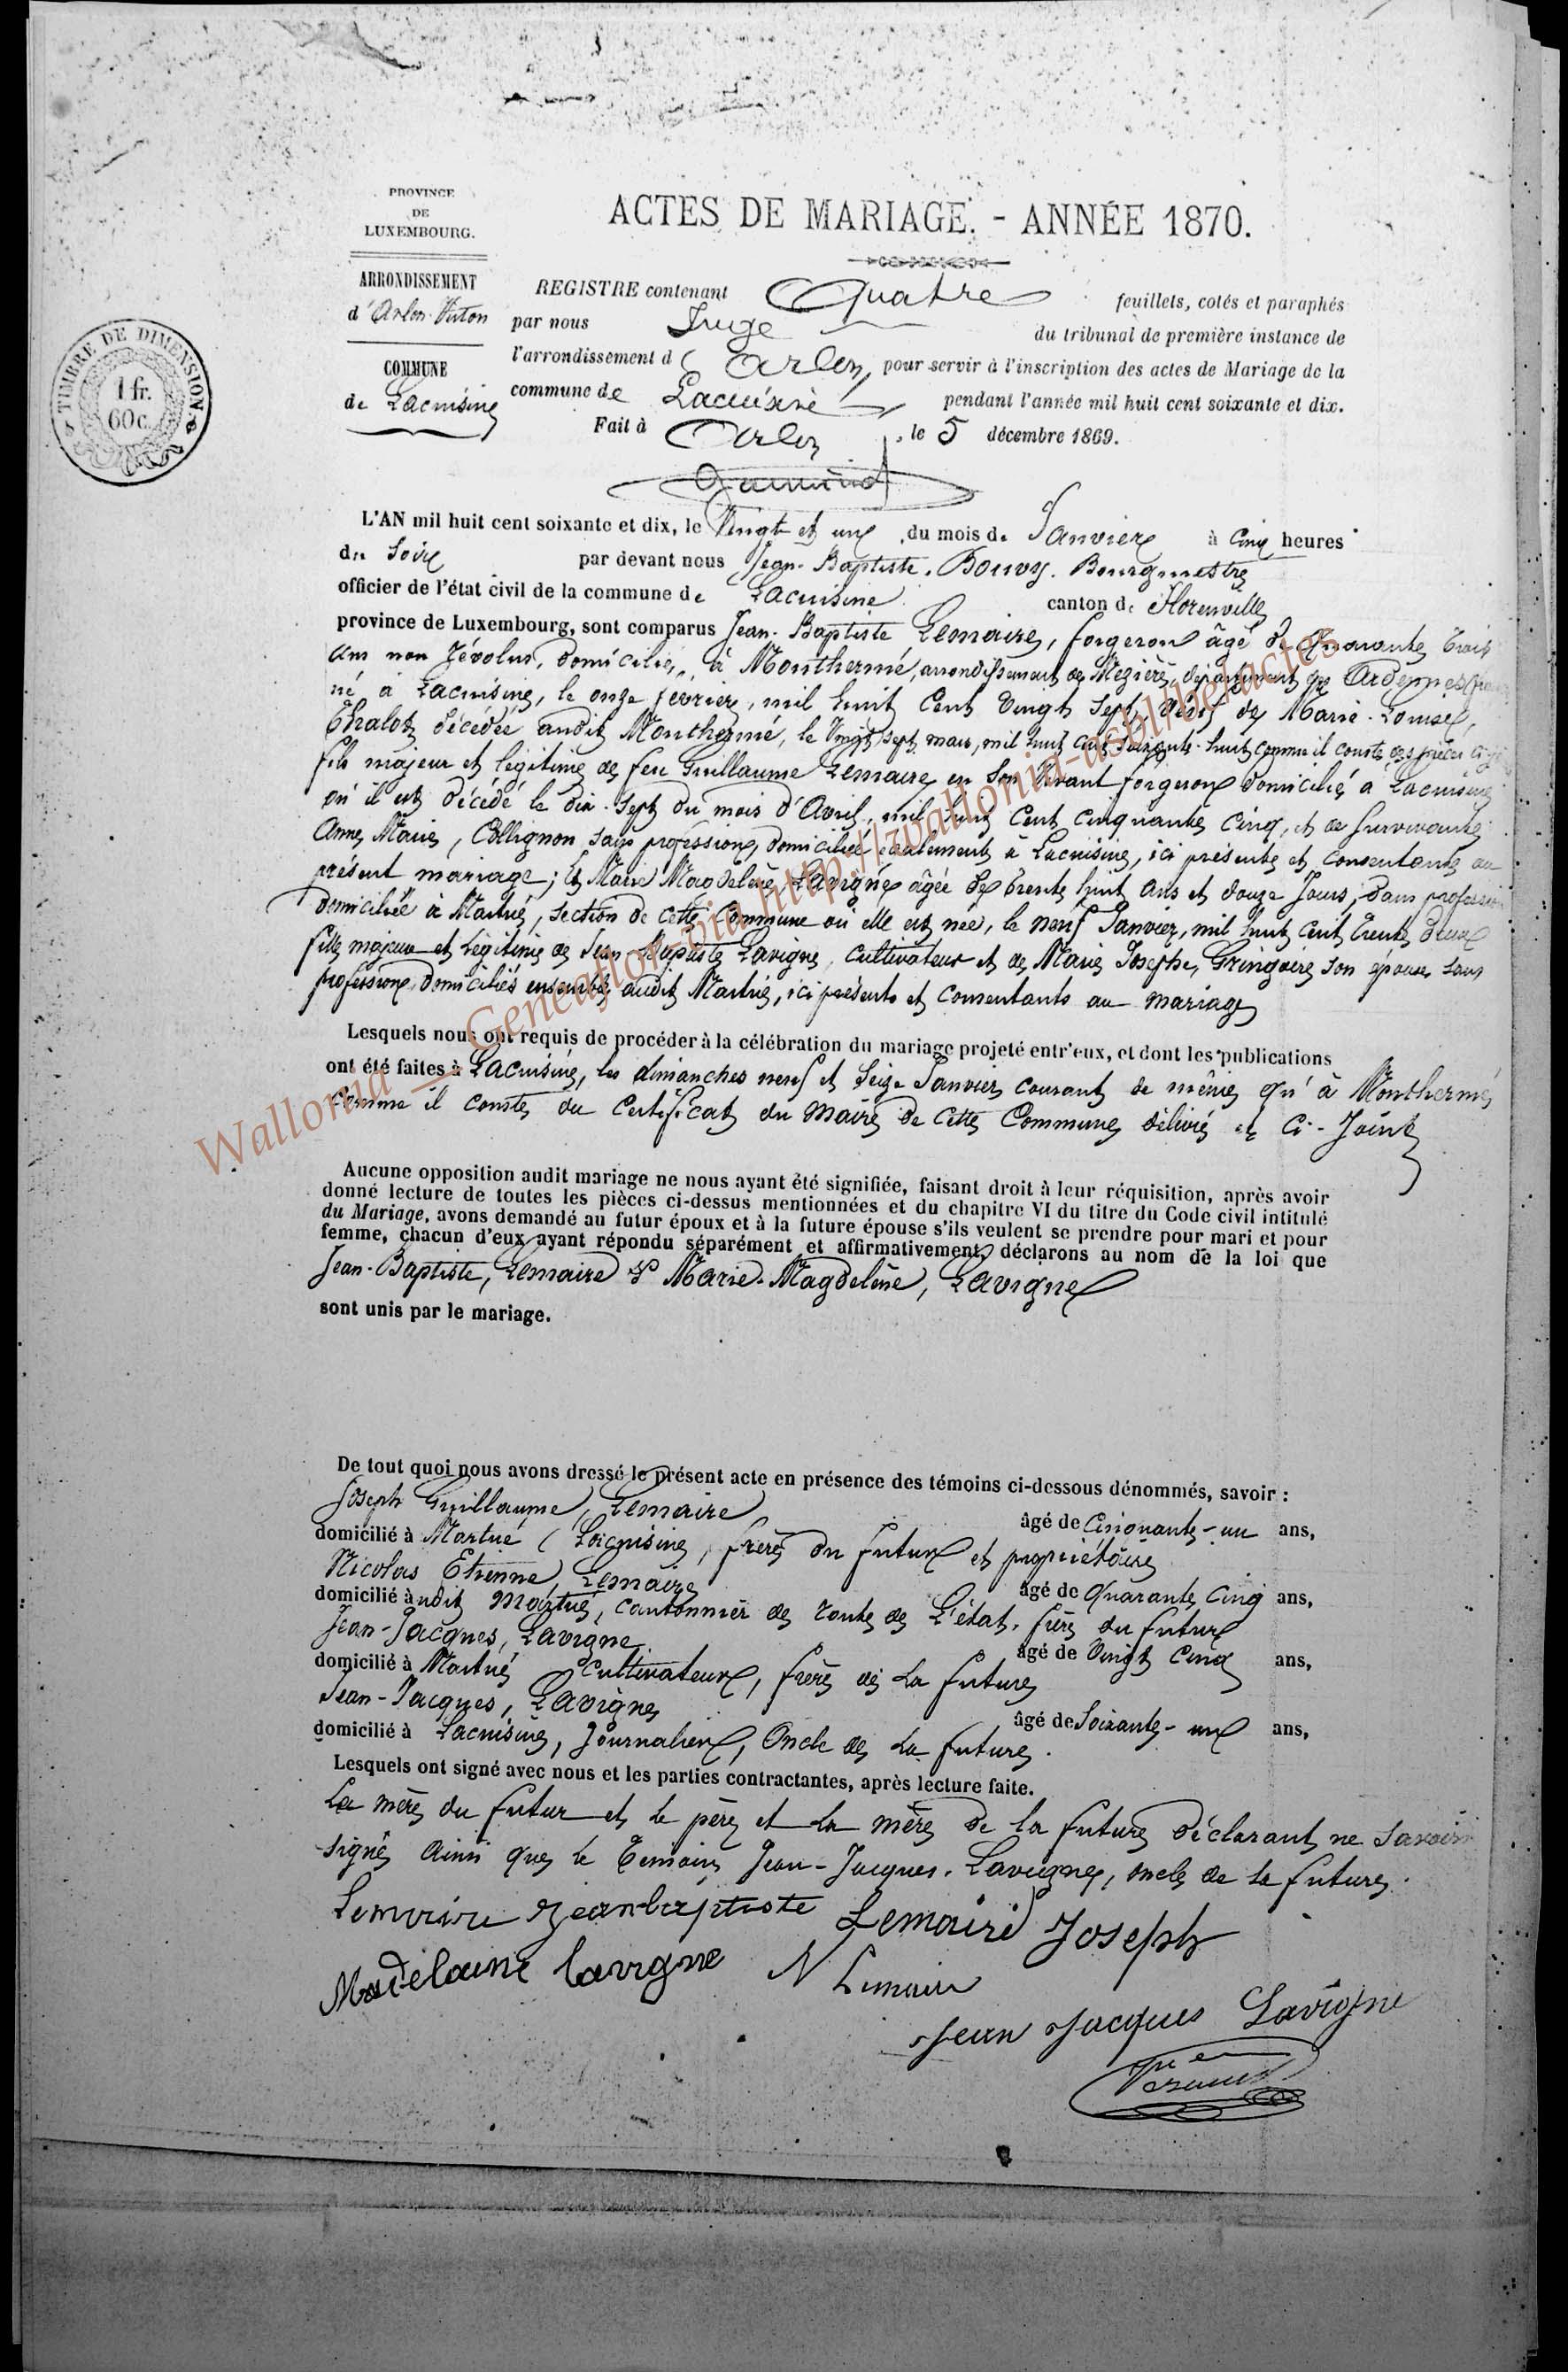 PROVINCE
DE
LUXEMBOURG.
ACTES DE MARIAGE. - ANNÉE 1870.
ARRONDISSEMENT
d'Arlon-Virton
COMMUNE
de Lacuisine
TIMBRE DE DIMENSION
1 fr.
60c.
REGISTRE contenant Quatre feuillets, cotés et paraphés
par nous Juge du tribunal de première instance de
l'arrondissement d' Arlon, pour servir à l'inscription des actes de Mariage de la
commune de Lacuisine pendant l'année mil huit cent soixante et dix.
Fait à Arlon, le 5 décembre 1869.
L'AN mil huit cent soixante et dix, le Vingt et un, du mois de Janvier à cinq heures
du Soir par devant nous Jean-Baptiste, Bouvy, Bourgmestre
officier de l'état civil de la commune de Lacuisine canton de Florenville
province de Luxembourg, sont comparus Jean-Baptiste Lemaire, forgeron âgé de Quarante trois
ans non révolus, domicilié, à Monthermé, arrondissement de Mézière, département des Ardennes
né à Lacuisine, le onze février, mil huit Cent Vingt Sept, de Marie-Louise,
Thalot décédée audit Monthermé, le Vingt sept mars, mil huit cent soixante-huit comme il conste des pièces
fils majeur et légitime de feu Guillaume Lemaire en Son Vivant forgeron domicilié à Lacuisine
où il est décédé le dix-sept du mois d'Avril, mil huit Cent Cinquante Cinq, et de survivante
Anne, Marie, Collignon sans profession, domiciliée également à Lacuisine, ici présente et consentante au
présent mariage; Et Marie Magdeleine Lavigne âgée de trente huit ans et douze Jours, Sans profession
domiciliée à Martué, Section de cette Commune où elle est née, le neuf Janvier, mil huit cent trente deux
fille majeure et légitime de Jean-Baptiste Lavigne, Cultivateur et de Marie Josephe, Gringoire son épouse sans
profession, domiciliés ensemble audit Martué, ici présents et consentants au mariage
Lesquels nous ont requis de procéder à la célébration du mariage projeté entr'eux, et dont les publications
ont été faites à Lacuisine, les dimanches neuf et Seize Janvier courant de même qu'à Monthermé
comme il conste du Certificat du Maire de Cette Commune délivré et Ci-Joint
Aucune opposition audit mariage ne nous ayant été signifiée, faisant droit à leur réquisition, après avoir
donné lecture de toutes les pièces ci-dessus mentionnées et du chapitre VI du titre du Code civil intitulé
du Mariage, avons demandé au futur époux et à la future épouse s'ils veulent se prendre pour mari et pour
femme, chacun d'eux ayant répondu séparément et affirmativement, déclarons au nom de la loi que
Jean-Baptiste, Lemaire & Marie-Magdeleine, Lavigne
sont unis par le mariage.
De tout quoi nous avons dressé le présent acte en présence des témoins ci-dessous dénommés, savoir :
Joseph Guillaume, Lemaire âgé de Cinquante-un ans,
domicilié à Martué (Lacuisine, frère du futur et propriétaire
Nicolas Etienne Lemaire âgé de Quarante Cinq ans,
domicilié à udit Martué, Cantonnier de route de L'état, frère du futur
Jean-Jacques, Lavigne âgé de Vingt Cinq ans,
domicilié à Martué Cultivateur, frère de La future
Jean-Jacques, Lavigne âgé de Soixante-un ans,
domicilié à Lacuisine, Journalier, Oncle de La future.
Lesquels ont signé avec nous et les parties contractantes, après lecture faite.
La mère du futur et le père et la mère de la future déclarant ne savoir
signé ainsi que le témoin Jean-Jacques, Lavigne, oncle de la future.
Lemaire Jean baptiste Lemaire Joseph
Madelaine lavigne N Lemaire
Jean Jacques Lavigne
Wallonia — Geneaflor via http://wallonia-asbl.be/actes